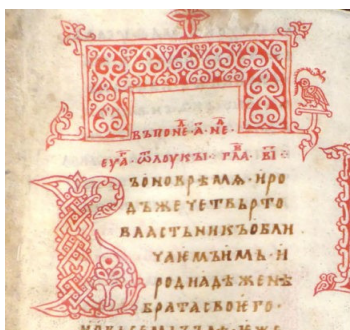 въ поне · а҃ · не ·
еѵа ѿ лоукы · гла · в҃і
Въ оно врѣмѧ · иро
дъ же четвърто
властьникъ обли
чаѥмъ имь · и
родиадѣ женѣ
брата своѥго ·